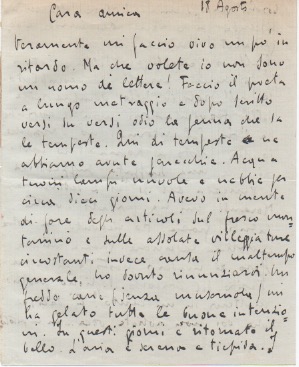 18 Agosto
Cara amica
Veramente mi faccio vivo un po' in
ritardo. Ma che volete io non sono
un uomo de lettere! Faccio il poeta
a lungo metraggio e dopo scritto
versi su versi odio la penna che sa
le tempeste. Qui di tempeste ne
abbiamo avute parecchie. Acqua
tuoni lampi nuvole e nebbie per
circa dieci giorni. Avevo in mente
di fare degli articoli sul fresco mon-
tanino e sulle assolate villeggiature
circostanti invece causa il maltempo
generale, ho dovuto rinunziarvi. Un
freddo cane (senza museruola) mi
ha gelato tutte le buone intenzio-
ni. In questi giorni è ritornato il
bello. L'aria è serena e tiepida.